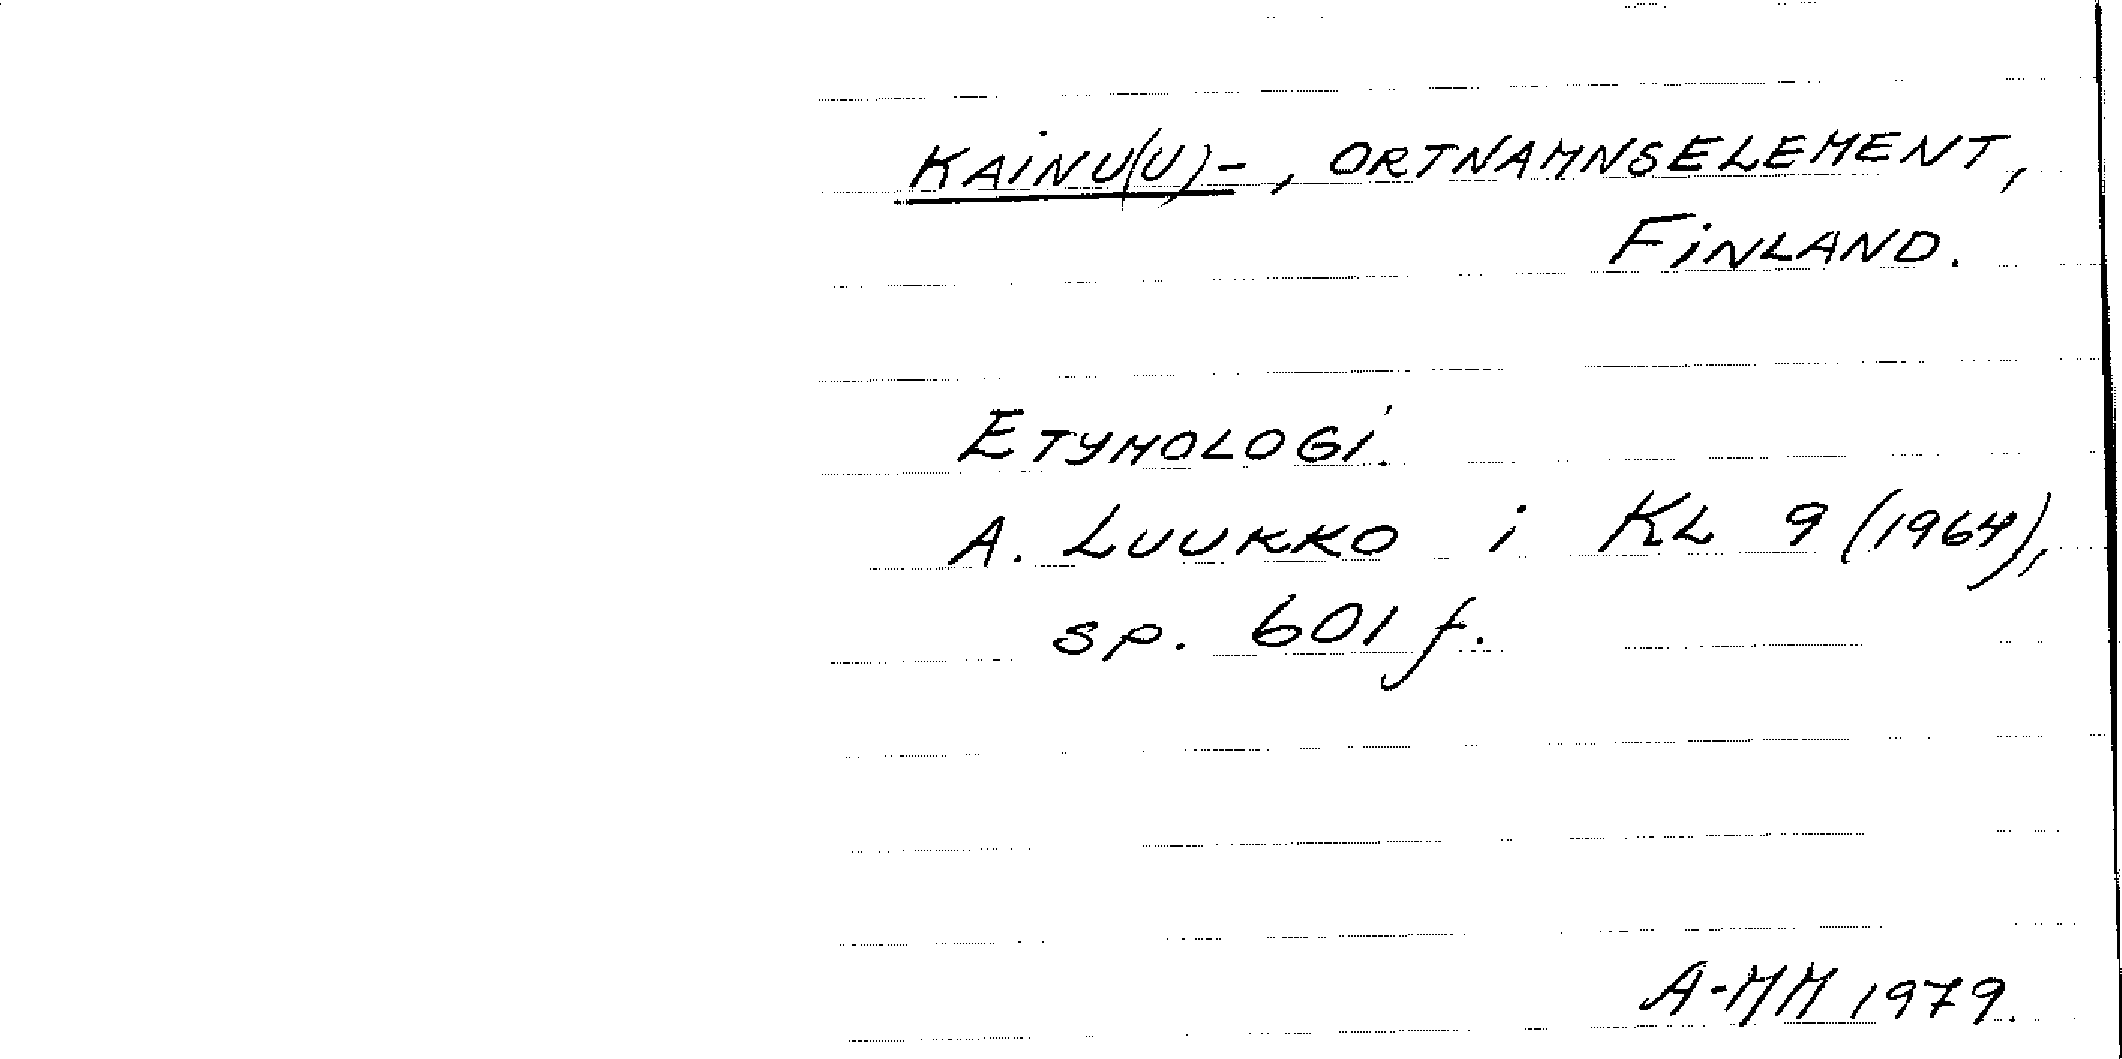 KAINU(U)-, ORTNAMNSELEMENT,
FINLAND.
ETYMOLOGI.
A. LUUKKO i KL 9 (1964),
sp. 601 f.
A-MM 1979.